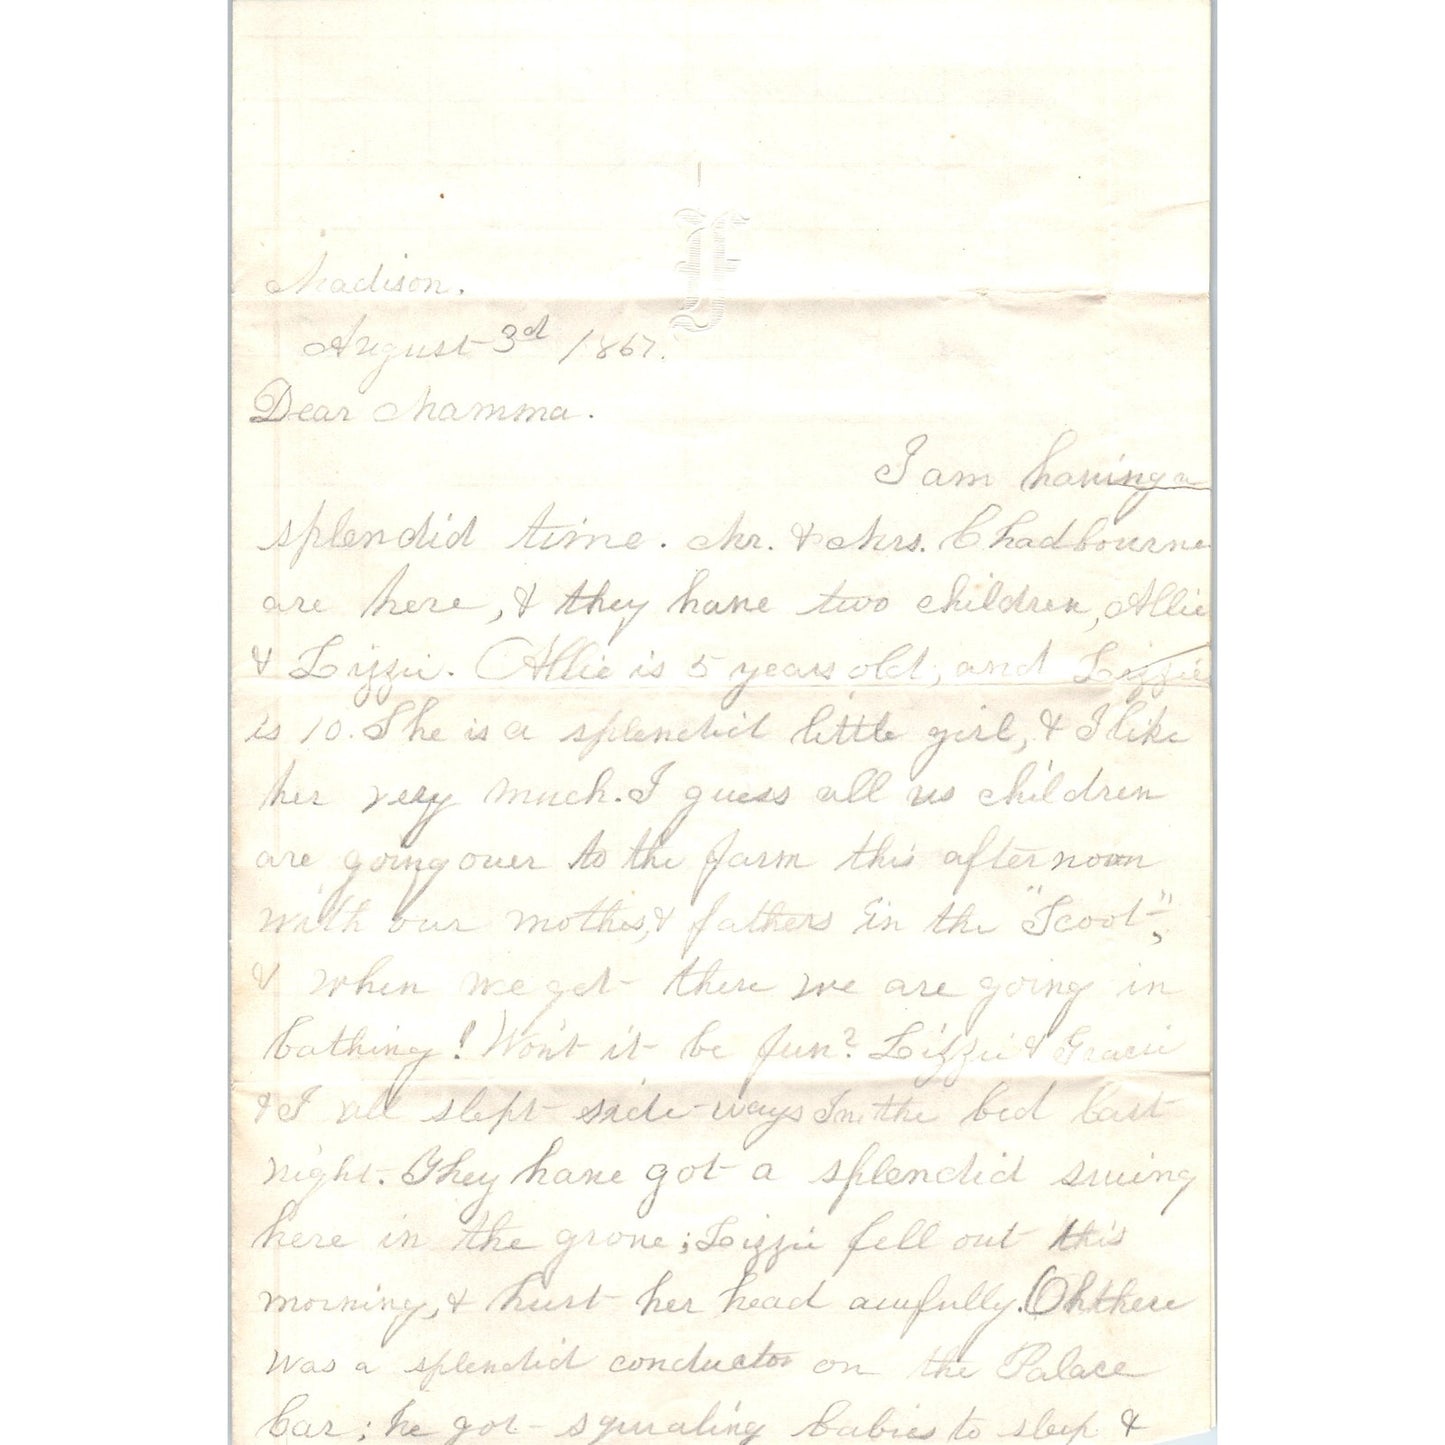 Madison.
August 3d / 1867.
Dear Mamma.
I am having a
splendid time. Mr. & Mrs. Chadbourne
are here, & they have two children, Allie
& Lizzie. Allie is 5 years old, and Lizzie
is 10. She is a splendid little girl, & I like
her very much. I guess all us children
are going over to the farm this afternoon
with our mothers, & fathers in the "Scoot",
& when we get there we are going in
bathing! Won't it be fun? Lizzie & Gracie
& I all slept side-ways in the bed last
night. They have got a splendid swing
here in the grove; Lizzie fell out this
morning, & hurt her head awfully. Oh there
was a splendid conductor on the Palace
Car; he got squaling babies to sleep &